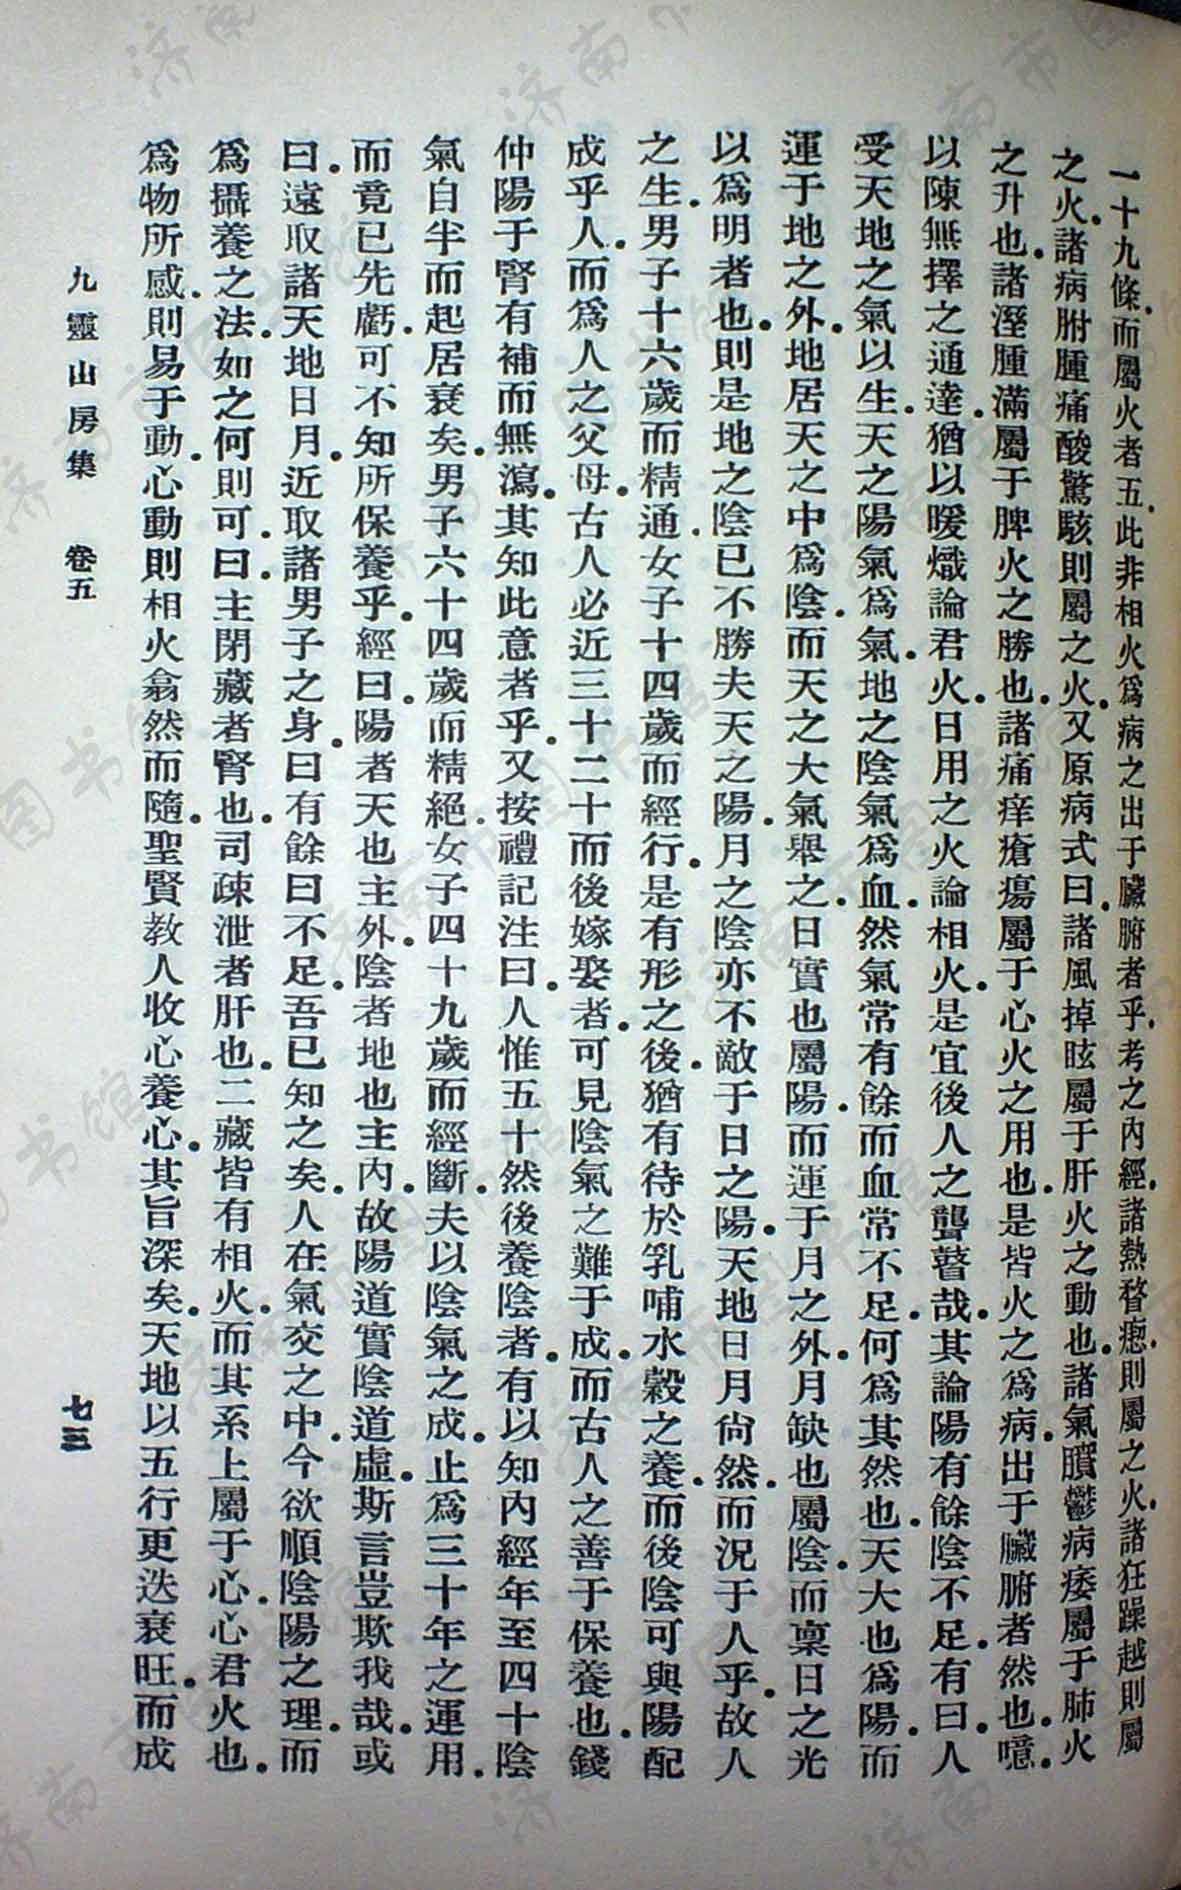 一十九條而屬火者五此非相火爲病之出于臟腑者乎考之內經諸熱瞀瘛則屬之火諸狂躁越則屬
之火諸病胕腫痛酸驚駭則屬之火又原病式曰諸風掉眩屬于肝火之動也諸氣膹鬱病痿屬于肺火
之升也諸溼腫滿屬于脾火之勝也諸痛痒瘡瘍屬于心火之用也是皆火之爲病出于臟腑者然也噫
以陳無擇之通達猶以暖熾論君火日用之火論相火是宜後人之聾瞽哉其論陽有餘陰不足有曰人
受天地之氣以生天之陽氣爲氣地之陰氣爲血然氣常有餘而血常不足何爲其然也天大也爲陽而
運于地之外地居天之中爲陰而天之大氣舉之日實也屬陽而運于月之外月缺也屬陰而稟日之光
以爲明者也則是地之陰已不勝夫天之陽月之陰亦不敵于日之陽天地日月尙然而況于人乎故人
之生男子十六歲而精通女子十四歲而經行是有形之後猶有待於乳哺水穀之養而後陰可與陽配
成乎人而爲人之父母古人必近三十二十而後嫁娶者可見陰氣之難于成而古人之善于保養也錢
仲陽于腎有補而無瀉其知此意者乎又按禮記注曰人惟五十然後養陰者有以知內經年至四十陰
氣自半而起居衰矣男子六十四歲而精絕女子四十九歲而經斷夫以陰氣之成止爲三十年之運用
而竟已先虧可不知所保養乎經曰陽者天也主外陰者地也主內故陽道實陰道虛斯言豈欺我哉或
曰遠取諸天地日月近取諸男子之身曰有餘曰不足吾已知之矣人在氣交之中今欲順陰陽之理而
爲攝養之法如之何則可曰主閉藏者腎也司疎泄者肝也二藏皆有相火而其系上屬于心心君火也
爲物所感則易于動心動則相火翕然而隨聖賢教人收心養心其旨深矣天地以五行更迭衰旺而成
九靈山房集 卷五 七三
济南市图书馆